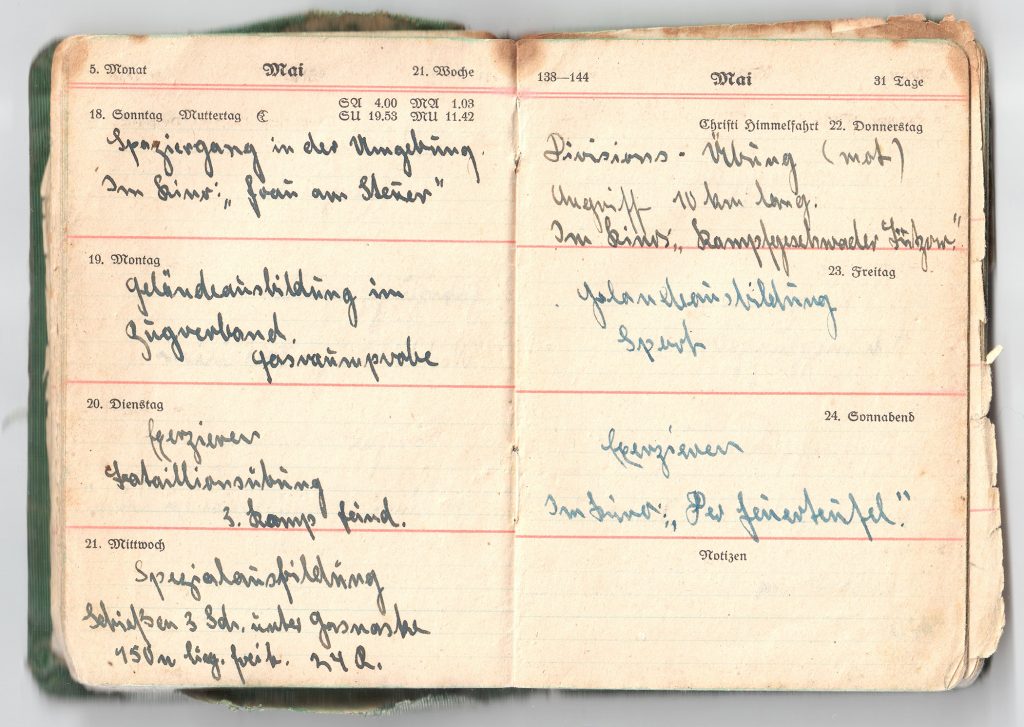 5. Monat Mai 21. Woche
18. Sonntag Muttertag ☾ SA 4.00 MA 1.03
SU 19.53 MU 11.42
Spaziergang in der Umgebung.
Im Kino: „Frau am Steuer"
19. Montag
Geländeausbildung im
Zugverband.
Gasraumprobe
20. Dienstag
Exerzieren
Bataillionsübung
3. Komp feind.
21. Mittwoch
Spezialausbildung
Schießen 3 Sch. unter Gasmaske
150 m lieg. freih. 24 R.
138—144 Mai 31 Tage
Christi Himmelfahrt 22. Donnerstag
Divisions-Übung (mot)
Angriff 10 km lang.
Im Kino „Kampfgeschwader Lützow."
23. Freitag
Geländeausbildung
Sport
24. Sonnabend
Exerzieren
Im Kino: „Der Feuerteufel."
Notizen